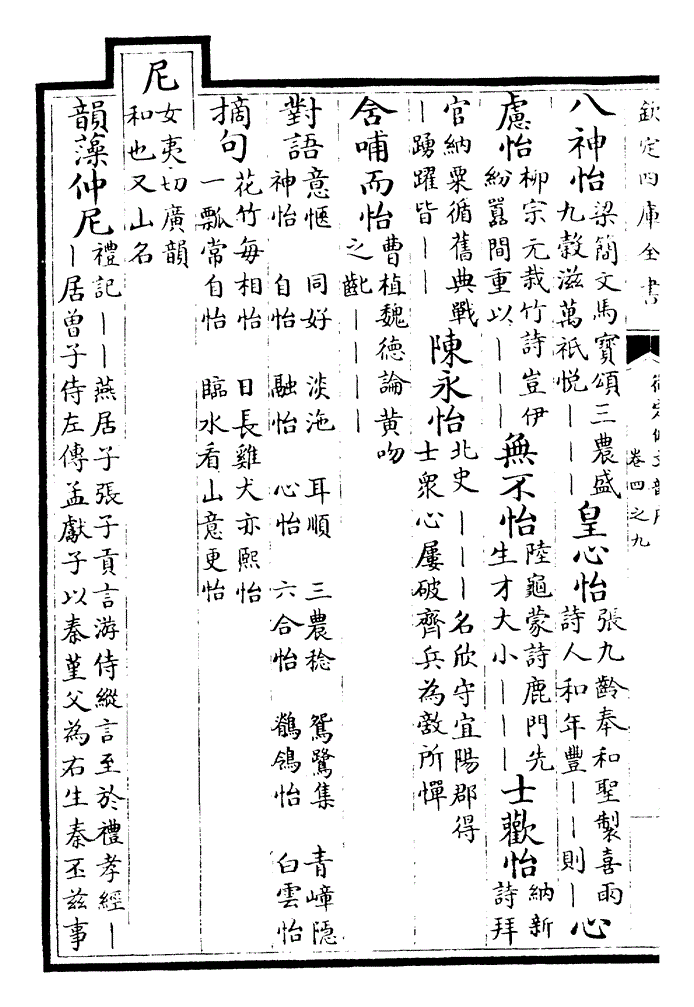 欽定四庫全書
卷四之九
八神怡梁簡文馬寶頌三農盛九穀滋萬祇悦｜｜｜皇心怡張九齡奉和聖製喜雨詩人和年豐｜｜則｜心
慮怡柳宗元栽竹詩豈伊紛囂間重以｜｜｜無不怡陸龜蒙詩鹿門先生才大小｜｜｜士歡怡納新詩拜
官納粟循舊典戰｜踴躍皆｜｜陳永怡北史｜｜｜名欣守宜陽郡得士衆心屢破齊兵為敵所憚
含哺而怡曹植魏德論黄吻之齔｜｜｜｜
對語意愜 神怡 同好 自怡 淡沲 融怡 耳順 心怡 三農稔 六合怡 鴛鷺集 鶺鴒怡 青嶂隱 白雲怡
摘句花竹每相怡 一瓢常自怡 日長雞犬亦熙怡 臨水看山意更怡
尼女夷切廣韻和也又山名
韻藻仲尼禮記｜｜燕居子張子貢言游侍縱言至於禮孝經｜｜居曾子侍左傳孟獻子以秦堇父為右生秦丕兹事